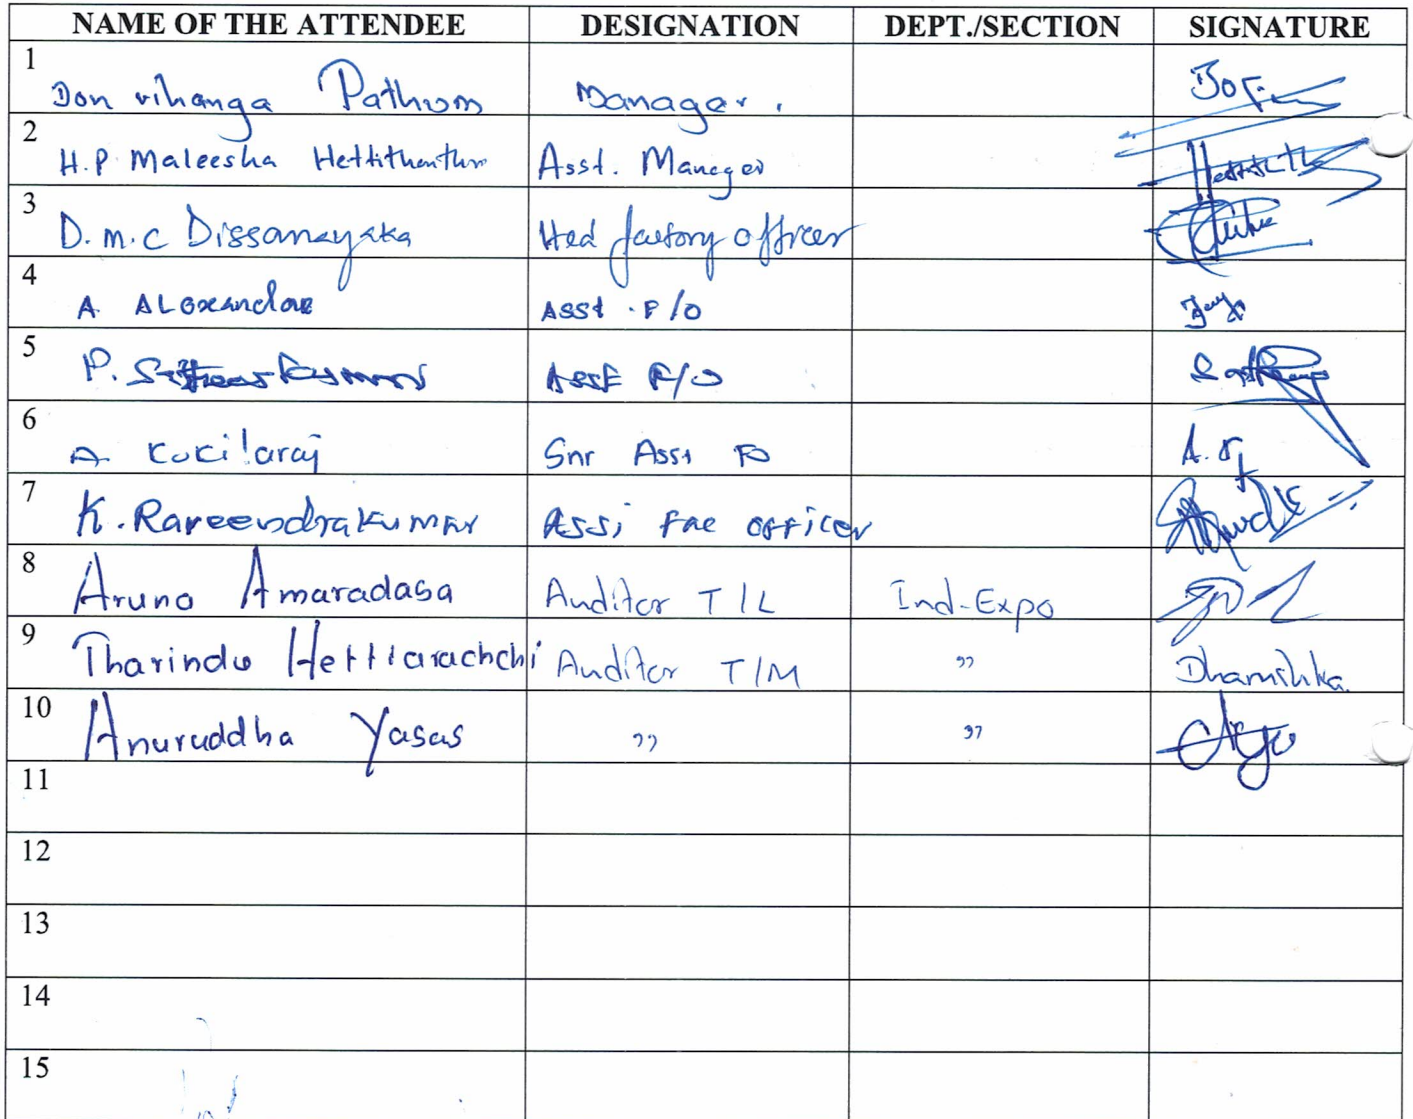 NAME OF THE ATTENDEE DESIGNATION DEPT./SECTION SIGNATURE
1 Don vihanga Pathum Manager.
2 H.P. Maleesha Hettithanthri Asst. Manager
3 D.M.C Dissanayaka Hed factory officer
4 A. ALexandar Asst. F/O
5 P. Asst F/O
6 A. Kokilaraj Snr Asst FO
7 K. Raveendrakumar Assi Fac officer
8 Aruna Amaradasa Auditor T/L Ind-Expo
9 Tharindu Hettiarachchi Auditor T/M " Dhanushka
10 Anuruddha Yasas " "
11
12
13
14
15